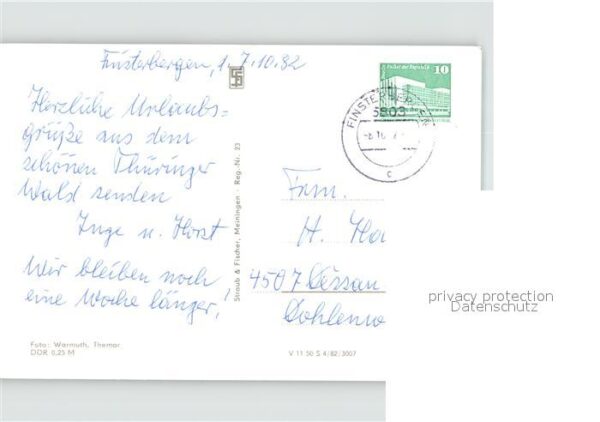 Finsterbergen, 1.7.10.82
Herzliche Urlaubs=
grüße aus dem
schönen Thüringer
Wald senden
Inge u. Horst
Wir bleiben noch
eine Woche länger,
Foto: Warmuth, Themar
DDR 0,25 M
Straub & Fischer, Meiningen Reg.-Nr. 23
V 11 50 S 4/82/3007
10
FINSTERBERGEN
5803
c
Fam.
H. Ha
4507 Dessau
privacy protection
Datenschutz